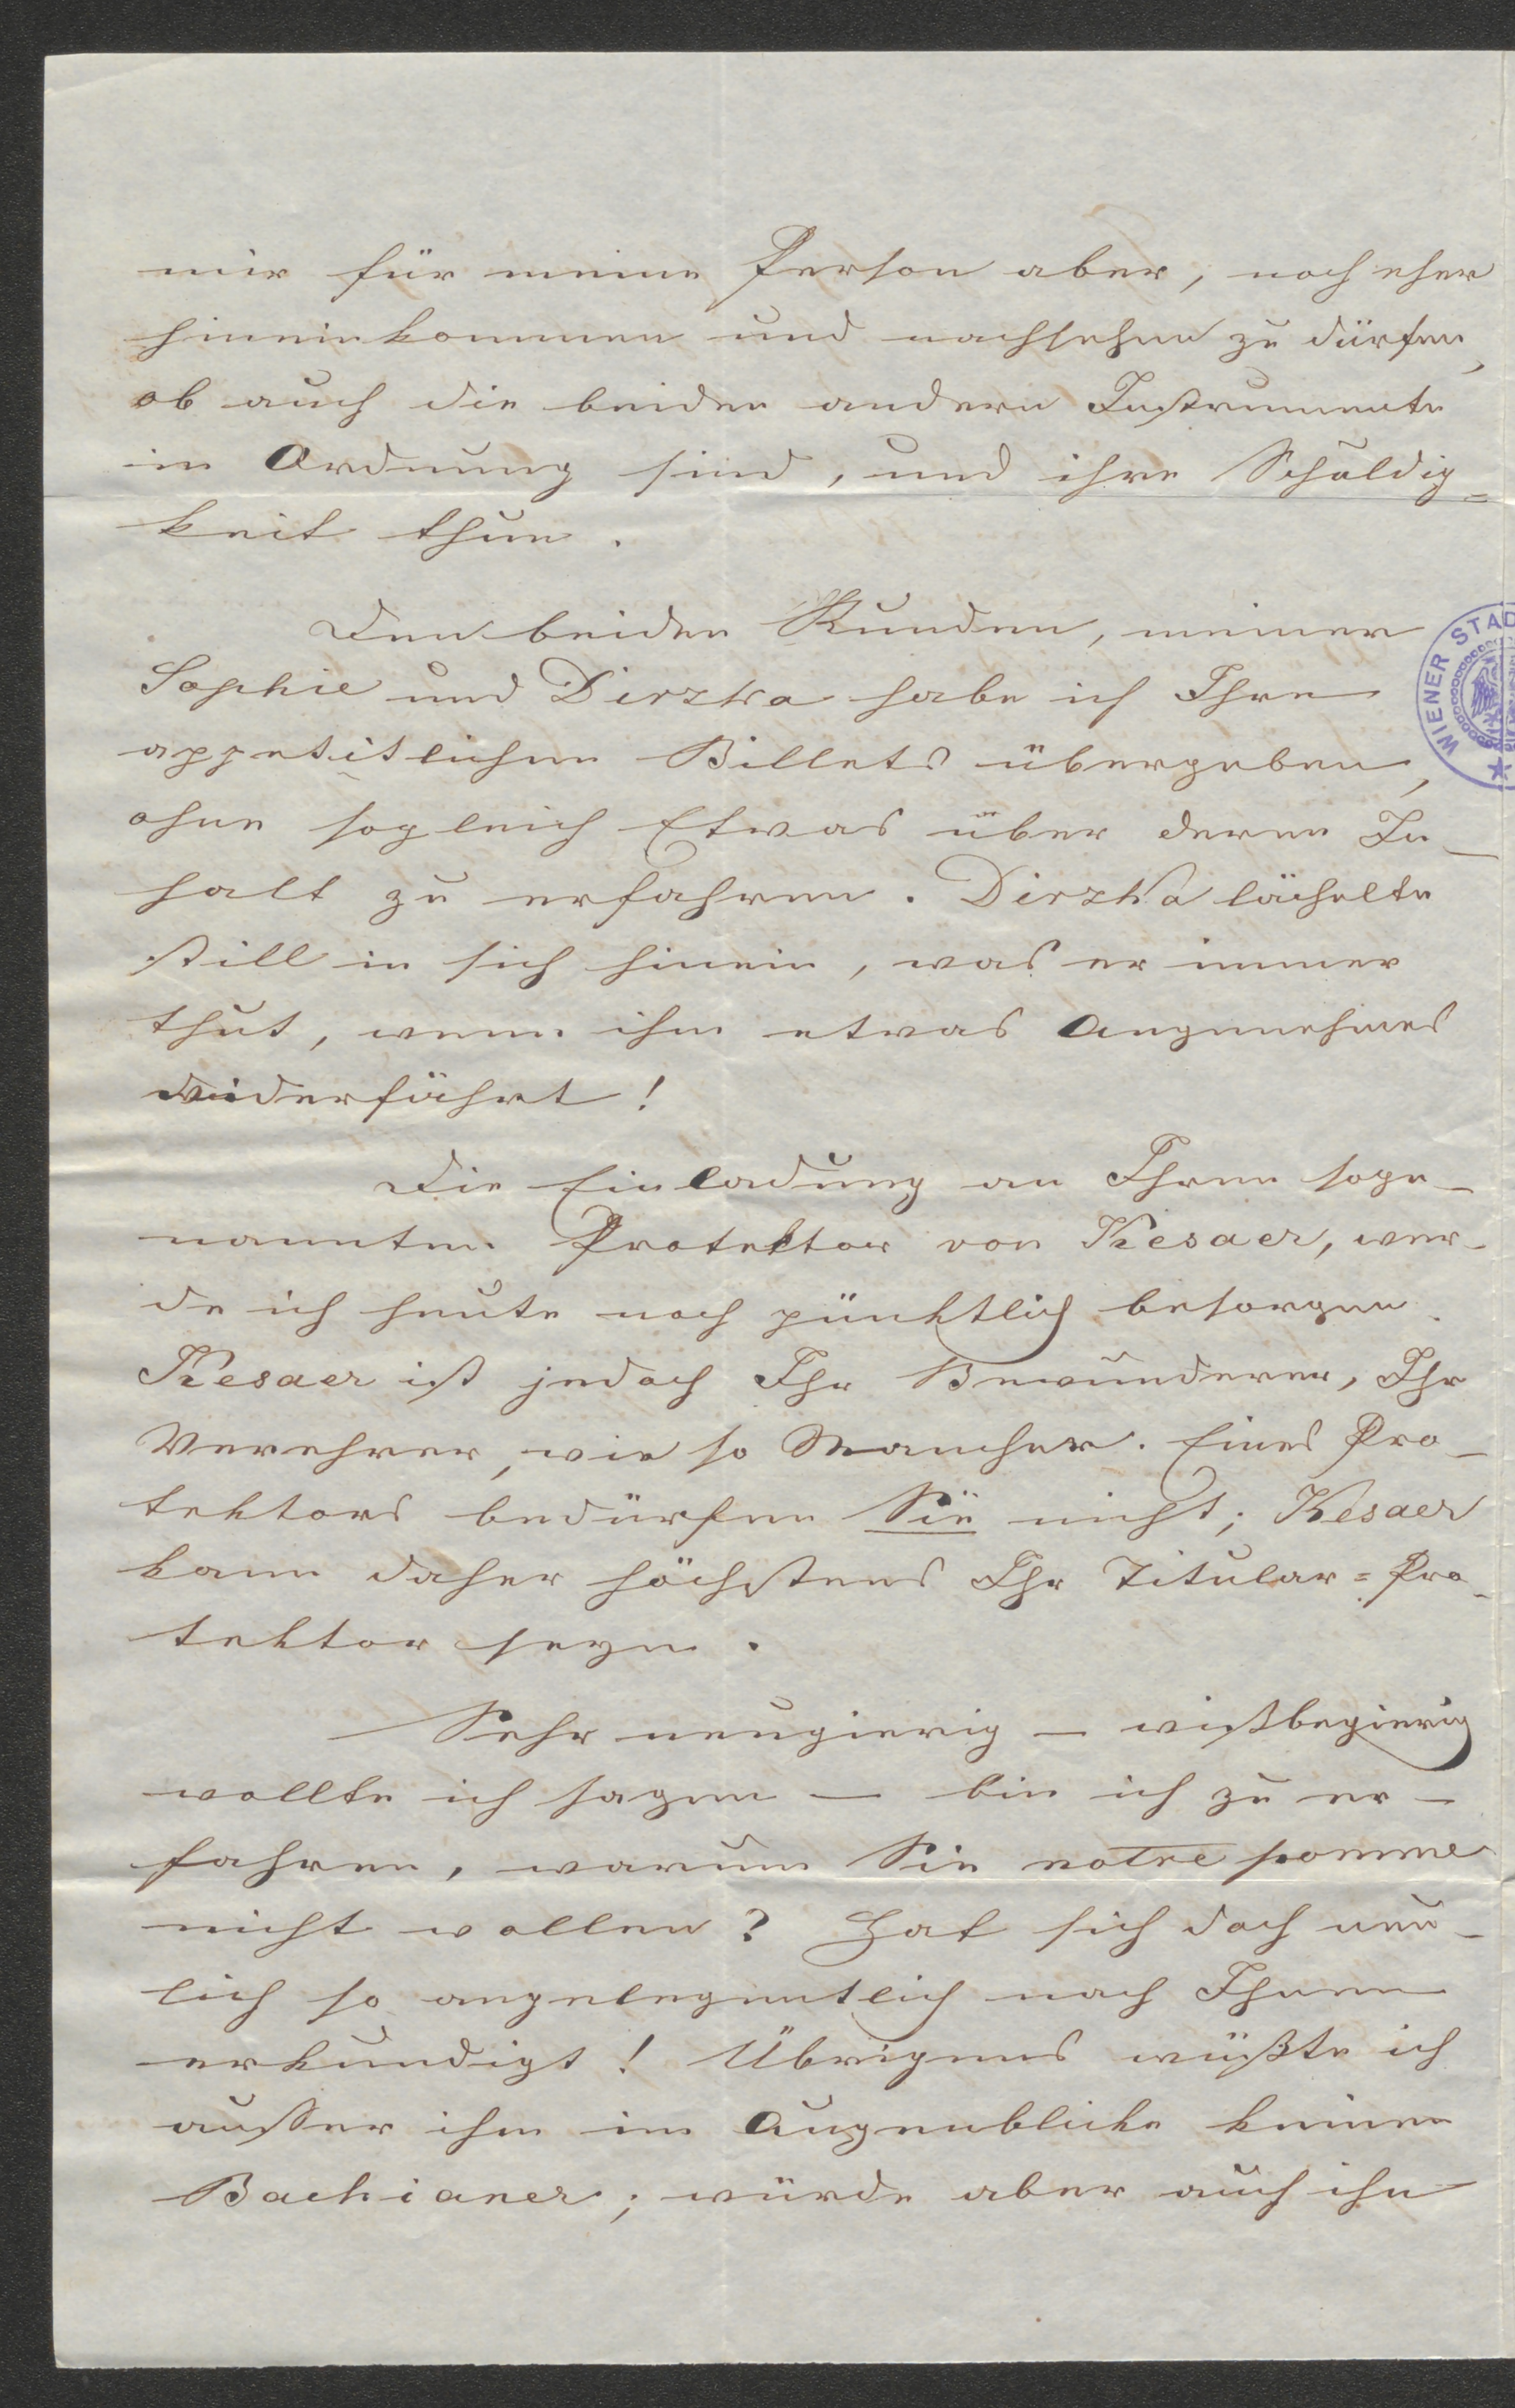 mir für meine Person aber, noch eher
hineinkommen und nachsehen zu dürfen,
ob auch die beiden andern Instrumente
in Ordnung sind, und ihre Schuldig=
keit thun.
Den beiden Kunden, meiner
Sophie und Dirzka habe ich Ihre
appetitlichen Billets übergeben,
ohne sogleich Etwas über deren In-
halt zu erfahren. Dirzka lächelte
still in sich hinein, was er immer
thut, wenn ihm etwas Angenehmes
widerfährt!
Die Einladung an Ihren soge-
nannten Protektor von Kesaer, wer-
de ich heute noch pünktlich besorgen.
Kesaer ist jedoch Ihr Bewunderer, Ihr
Verehrer, wie so Mancher. Eines Pro-
tektors bedürfen Sie nicht; Kesaer
kann daher höchstens Ihr Titular=Pro-
tektor seyn.
Sehr neugierig — wißbegierig
wollte ich sagen — bin ich zu er-
fahren, warum Sie notre pomme
nicht wollen? Hat sich doch neu-
lich so angelegentlich nach Ihnen
erkundigt! Übrigens wüßte ich
ausser ihm im Augenblicke keinen
Bachianer; würde aber auch ihn
WIENER STAD